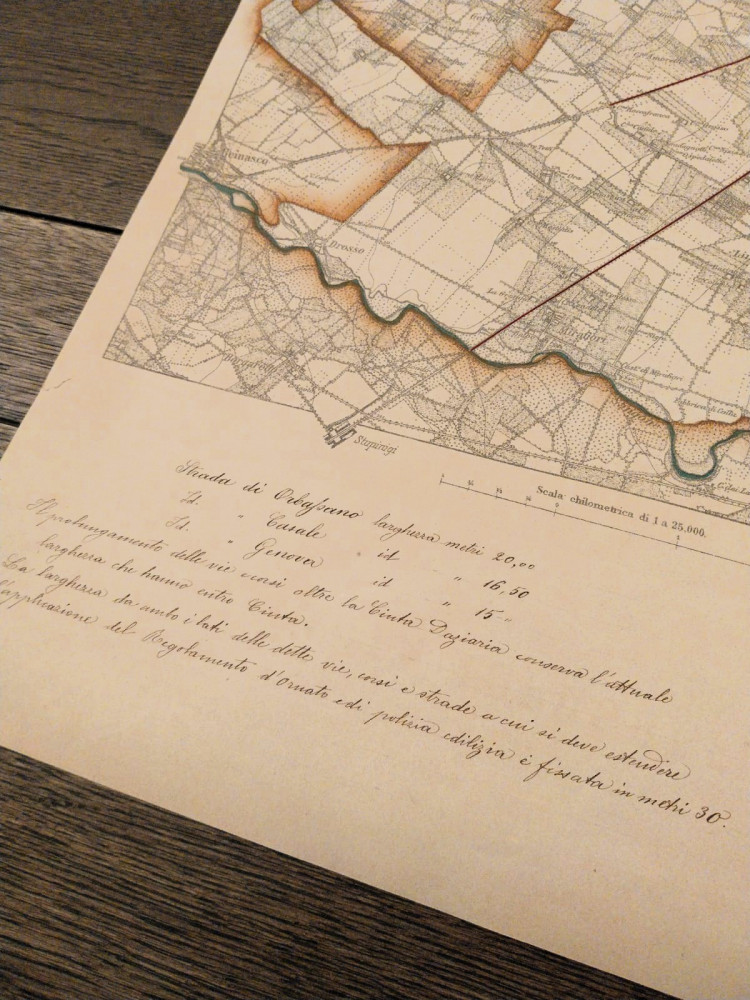 Beinasco
Drosso
Mirafiori
Stupinigi
Scala chilometrica di 1 a 25.000.
Strada di Orbassano larghezza metri 20,00
Id. " Casale " id " 16,50
Id. " Genova id " 15 -
Il prolungamento delle vie e corsi oltre la Cinta Daziaria conserva l'attuale
larghezza che hanno entro Cinta.
La larghezza da ambo i lati delle dette vie, corsi e strade a cui si deve estendere
l'applicazione del Regolamento d'Ornato e di polizia edilizia è fissata in metri 30.